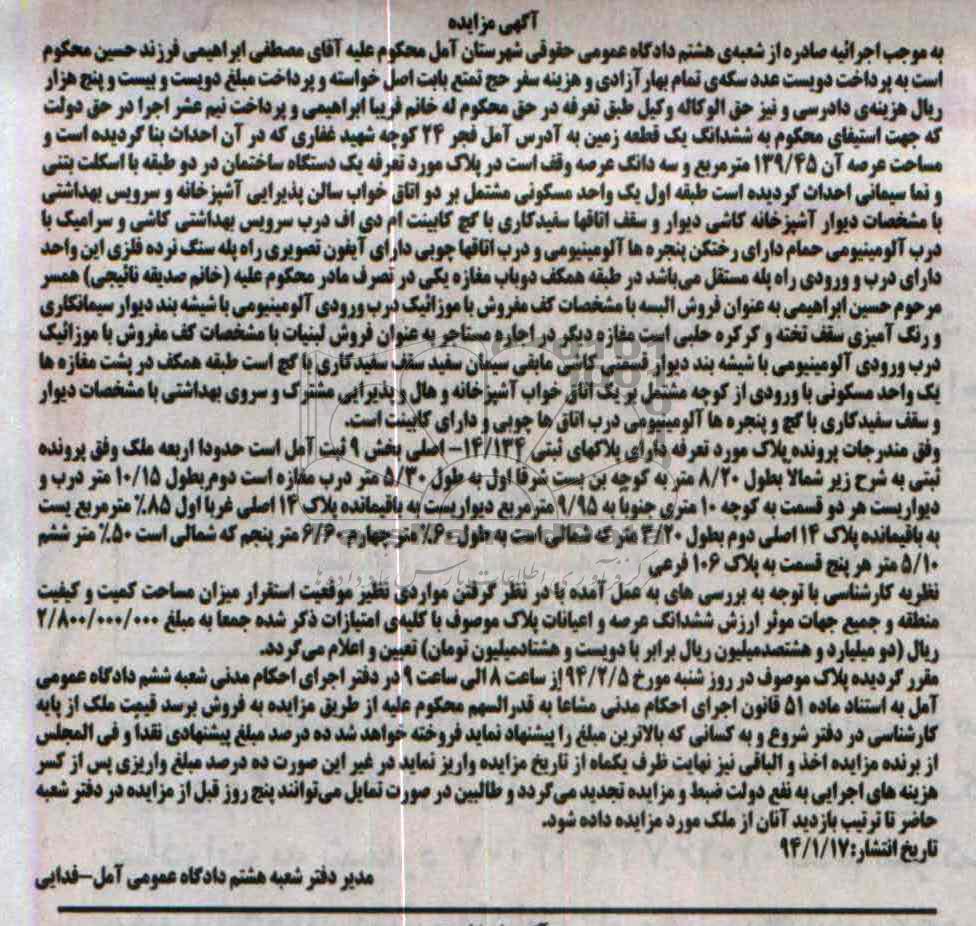 آگهی مزایده
به موجب اجرائیه صادره از شعبه‌ی هشتم دادگاه عمومی حقوقی شهرستان آمل محکوم علیه آقای مصطفی ابراهیمی فرزند حسین محکوم
است به پرداخت دویست عدد سکه‌ی تمام بهار آزادی و هزینه سفر حج تمتع بابت اصل خواسته و پرداخت مبلغ دویست و بیست و پنج هزار
ریال هزینه‌ی دادرسی و نیز حق الوکاله وکیل طبق تعرفه در حق محکوم له خانم فریبا ابراهیمی و پرداخت نیم عشر اجرا در حق دولت
که جهت استیفای محکوم به ششدانگ یک قطعه زمین به آدرس آمل فجر ۲۴ کوچه شهید غفاری که در آن احداث بنا گردیده است و
مساحت عرصه آن ۱۳۹/۴۵ مترمربع و سه دانگ عرصه وقف است در پلاک مورد تعرفه یک دستگاه ساختمان در دو طبقه با اسکلت بتنی
و نما سیمانی احداث گردیده است طبقه اول یک واحد مسکونی مشتمل بر دو اتاق خواب سالن پذیرایی آشپزخانه و سرویس بهداشتی
با مشخصات دیوار آشپزخانه کاشی دیوار و سقف اتاقها سفیدکاری با گچ کابینت ام دی اف درب سرویس بهداشتی کاشی و سرامیک با
درب آلومینیومی حمام دارای رختکن پنجره ها آلومینیومی و درب اتاقها چوبی دارای آیفون تصویری راه پله سنگ نرده فلزی این واحد
دارای درب و ورودی راه پله مستقل می‌باشد در طبقه همکف دوباب مغازه یکی در تصرف مادر محکوم علیه (خانم صدیقه نائیجی) همسر
مرحوم حسین ابراهیمی به عنوان فروش البسه با مشخصات کف مفروش با موزائیک درب ورودی آلومینیومی با شیشه بند دیوار سیمانکاری
و رنگ آمیزی سقف تخته و کرکره حلبی است مغازه دیگر در اجاره مستاجر به عنوان فروش لبنیات با مشخصات کف مفروش با موزائیک
درب ورودی آلومینیومی با شیشه بند دیوار قسمتی کاشی مابقی سیمان سفید سقف سفیدکاری با گچ است طبقه همکف در پشت مغازه ها
یک واحد مسکونی با ورودی از کوچه مشتمل بر یک اتاق خواب آشپزخانه و هال و پذیرایی مشترک و سروی بهداشتی با مشخصات دیوار
و سقف سفیدکاری با گچ و پنجره ها آلومینیومی درب اتاق ها چوبی و دارای کابینت است.
وفق مندرجات پرونده پلاک مورد تعرفه دارای پلاکهای ثبتی ۱۴/۱۳۴- اصلی بخش ۹ ثبت آمل است حدودا اربعه ملک وفق پرونده
ثبتی به شرح زیر شمالا بطول ۸/۲۰ متر به کوچه بن بست شرقا اول به طول ۵/۳۰ متر درب مغازه است دوم بطول ۱۰/۱۵ متر درب و
دیواریست هر دو قسمت به کوچه ۱۰ متری جنوبا به ۹/۹۵ مترمربع دیواریست به باقیمانده پلاک ۱۴ اصلی غربا اول ۸۵٪ مترمربع پست
به باقیمانده پلاک ۱۴ اصلی دوم بطول ۳/۲۰ متر که شمالی است به طول ۶۰٪ متر چهارم ۶/۶۰ متر پنجم که شمالی است ۵۰٪ متر ششم
۵/۱۰ متر هر پنج قسمت به پلاک ۱۰۶ فرعی
نظریه کارشناسی با توجه به بررسی های به عمل آمده با در نظر گرفتن مواردی نظیر موقعیت استقرار میزان مساحت کمیت و کیفیت
منطقه و جمیع جهات موثر ارزش ششدانگ عرصه و اعیانات پلاک موصوف با کلیه‌ی امتیازات ذکر شده جمعا به مبلغ ۲/۸۰۰/۰۰۰/۰۰۰
ریال (دو میلیارد و هشتصدمیلیون ریال برابر با دویست و هشتادمیلیون تومان) تعیین و اعلام می‌گردد.
مقرر گردیده پلاک موصوف در روز شنبه مورخ ۹۴/۲/۵ از ساعت ۸ الی ساعت ۹ در دفتر اجرای احکام مدنی شعبه ششم دادگاه عمومی
آمل به استناد ماده ۵۱ قانون اجرای احکام مدنی مشاعا به قدرالسهم محکوم علیه از طریق مزایده به فروش برسد قیمت ملک از پایه
کارشناسی در دفتر شروع و به کسانی که بالاترین مبلغ را پیشنهاد نماید فروخته خواهد شد ده درصد مبلغ پیشنهادی نقدا و فی المجلس
از برنده مزایده اخذ و الباقی نیز نهایت ظرف یکماه از تاریخ مزایده واریز نماید در غیر این صورت ده درصد مبلغ واریزی پس از کسر
هزینه های اجرایی به نفع دولت ضبط و مزایده تجدید می‌گردد و طالبین در صورت تمایل می‌توانند پنج روز قبل از مزایده در دفتر شعبه
حاضر تا ترتیب بازدید آنان از ملک مورد مزایده داده شود.
تاریخ انتشار: ۹۴/۱/۱۷
مدیر دفتر شعبه هشتم دادگاه عمومی آمل-فدایی